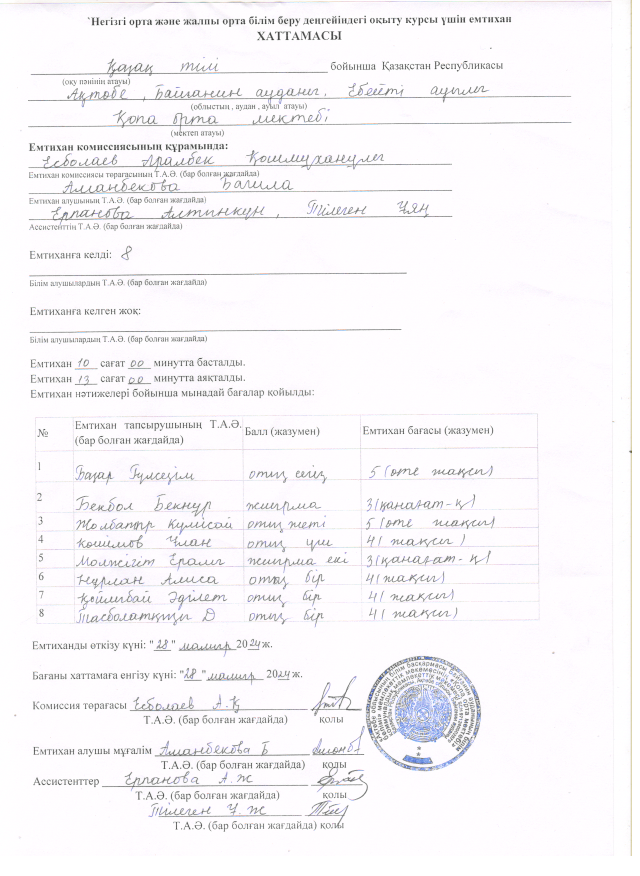 `Негізгі орта және жалпы орта білім беру деңгейіндегі оқыту курсы үшін емтихан
ХАТТАМАСЫ
Қазақ тілі бойынша Қазақстан Республикасы
(оқу пәнінің атауы)
Ақтөбе, Байғанин ауданы, Ебейті ауылы
(облыстың , аудан , ауыл атауы)
Қопа орта мектебі
(мектеп атауы)
Емтихан комиссиясының құрамында:
Есболаев Аралбек Қошмуханұлы
Емтихан комиссиясы төрағасының Т.А.Ә. (бар болған жағдайда)
Аманбекова Бағила
Емтихан алушының Т.А.Ә. (бар болған жағдайда)
Ерпанова Алтинкүн, Тілеген Ұяң
Ассистенттің Т.А.Ә. (бар болған жағдайда)
Емтиханға келді: 8
Білім алушылардың Т.А.Ә. (бар болған жағдайда)
Емтиханға келген жоқ:
Білім алушылардың Т.А.Ә. (бар болған жағдайда)
Емтихан 10 сағат 00 минутта басталды.
Емтихан 13 сағат 00 минутта аяқталды.
Емтихан нәтижелері бойынша мынадай бағалар қойылды:
№ Емтихан тапсырушының Т.А.Ә. (бар болған жағдайда) Балл (жазумен) Емтихан бағасы (жазумен)
1 Базар Гүлсезім отыз сегіз 5 (өте жақсы)
2 Бекбол Бекнұр жиырма 3(қанағат-қ)
3 Жолбатыр Күмісай отыз жеті 5 (өте жақсы)
4 Көшімов Ұлан отыз үш 4( жақсы )
5 Молжігіт Ералы жиырма екі 3(қанағат-қ)
6 Нұрлан Алиса отыз бір 4( жақсы)
7 Қойлыбай Әділет отыз бір 4( жақсы)
8 Тасболатқызы Д отыз бір 4( жақсы)
Емтиханды өткізу күні: "28" мамыр 2024ж.
Бағаны хаттамаға енгізу күні: "28" мамыр 2024ж.
Комиссия төрағасы Есболаев А.Қ
Т.А.Ә. (бар болған жағдайда) қолы
Емтихан алушы мұғалім Аманбекова Б
Т.А.Ә. (бар болған жағдайда) қолы
Ассистенттер Ерпанова А.Ж
Т.А.Ә. (бар болған жағдайда) қолы
Тілеген Ұ.Ж
Т.А.Ә. (бар болған жағдайда) қолы